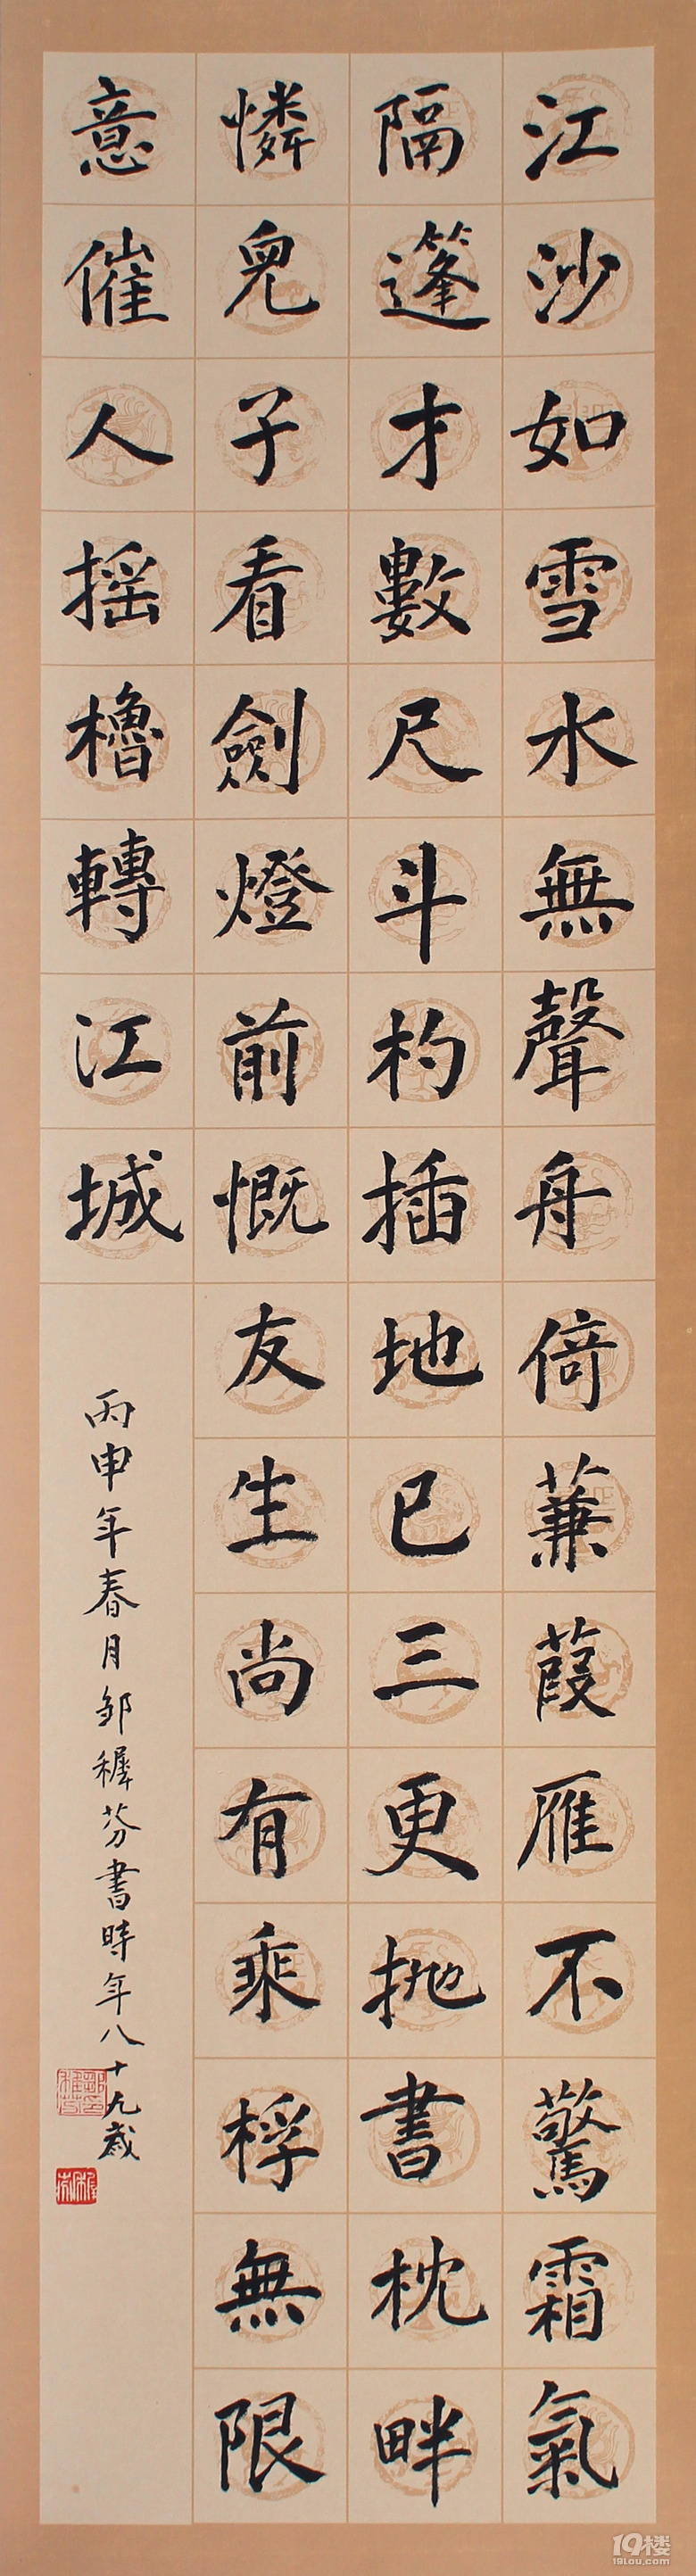 江沙如雪水無聲舟倚蒹葭雁不驚霜氣
隔篷才數尺斗杓插地已三更拋書枕畔
憐兒子看劍燈前慨友生尚有乘桴無限
意催人搖櫓轉江城
丙申年春月鄒穉芬書時年八十九歲
19楼
19lou.com